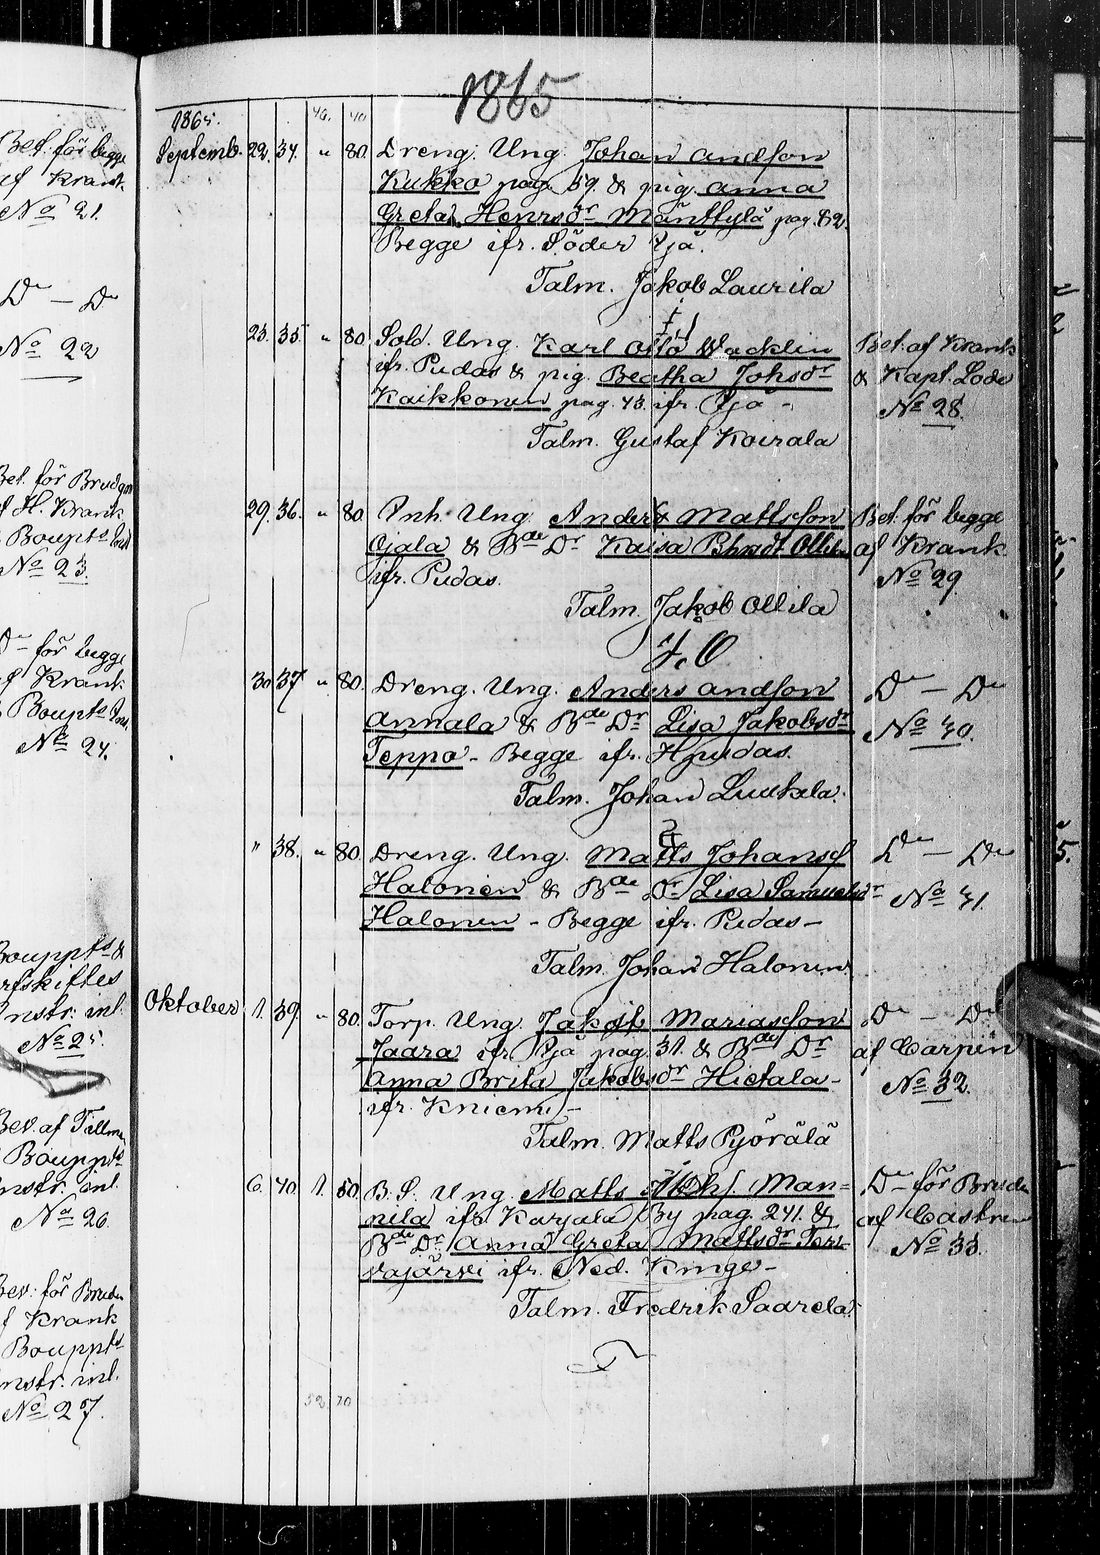 Bet. för begge
af Krank
No 21.
De — De
No 22
Bet. för Brudgm
af H. Krank
Boupts
No 23.
De för begge
af Krank
Boupts
No 24.
Bouppts &
arfskiftes
Instr. inl.
No 25
Bev. af Tillman
Bouppts
instr. inl.
No 26.
Bev. för Bruden
af Krank
Bouppts
instr. inl.
No 27.
1865
1865.
46. 40
Septemb. 22. 34. " 80. Dreng. Ung. Johan Andsson
Kukko pag. 59. & pig. Anna
Greta Henrsdr Mänttylä pag. 82.
Begge ifr. Söder Yjä.
Talm. Jakob Laurila
23. 35. " 80. Sold. Ung. Karl Otto Wacklin Bet. af Krank
ifr. Pudas & pig. Beatha Johsdr & Kapt. Lode
Kaikkonen pag. 43. ifr. Yjä - No 28.
Talm. Gustaf Koirala
29. 36. " 80. Inh. Ung. Anders Mattsson Bet. för begge
Ojala & Bde Dr Kaisa Bhrdt Ollila af Krank
ifr. Pudas. No 29.
Talm. Jakob Ollila
J. O
30 37 " 80. Dreng. Ung. Anders Andsson De — De
Annala & Bde Dr Lisa Jakobsdr No 30.
Teppo - Begge ifr. Hpudas.
Talm. Johan Luukala.
" 38. " 80. Dreng. Ung. Matts Johanss De — De
Halonen & Bde Dr Lisa Samuelsdr No 31.
Halonen - Begge ifr. Pudas -
Talm. Johan Halonen
Oktober 1. 39. " 80. Torp. Ung. Jakob Mariasson De — De
Jaara ifr. Yjä pag. 31. & Bde Dr af Carpén
Anna Brita Jakobsdr Hietala - No 32.
ifr. Kniemi -
Talm. Matts Pyörälä
6. 40. 1. 60. B. S. Ung. Matts Man= De för Bruden
nila ifr. Karjala By pag. 241. & af Castrén
Bde Dr Anna Greta Mattsdr Ter= No 33.
vajärvi ifr. Ned. Kinge -
Talm. Fredrik Saarela.
52. 70